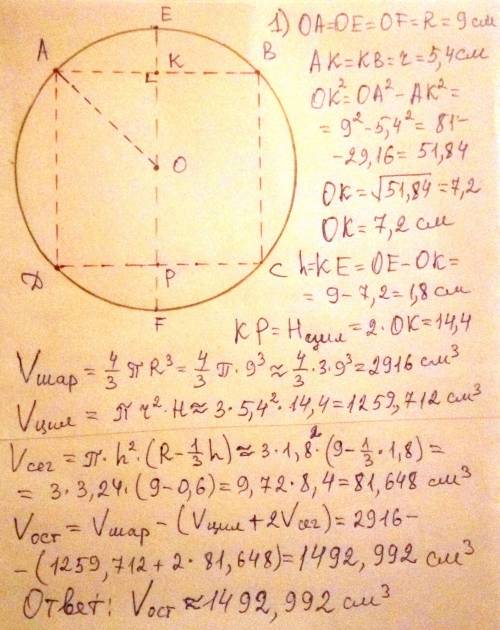 E
A
K
B
O
D
P
C
F
1) OA=OE=OF=R=9см
AK=KB=r=5,4см
OK²=OA²-AK²=
=9²-5,4²=81-
-29,16=51,84
OK=√51,84=7,2
OK=7,2см
h=KE=OE-OK=
=9-7,2=1,8см
KP=Hцил=2·OK=14,4
Vшар=4/3 πR³=4/3 π·9³≈4/3·3·9³=2916 см³
Vцил=πr²·H≈3·5,4²·14,4=1259,712 см³
Vсег=π·h²·(R-1/3h)≈3·1,8²·(9-1/3·1,8)=
=3·3,24·(9-0,6)=9,72·8,4=81,648 см³
Vост=Vшар-(Vцил+2Vсег)=2916-
-(1259,712+2·81,648)=1492,992 см³
Ответ: Vост≈1492,992 см³